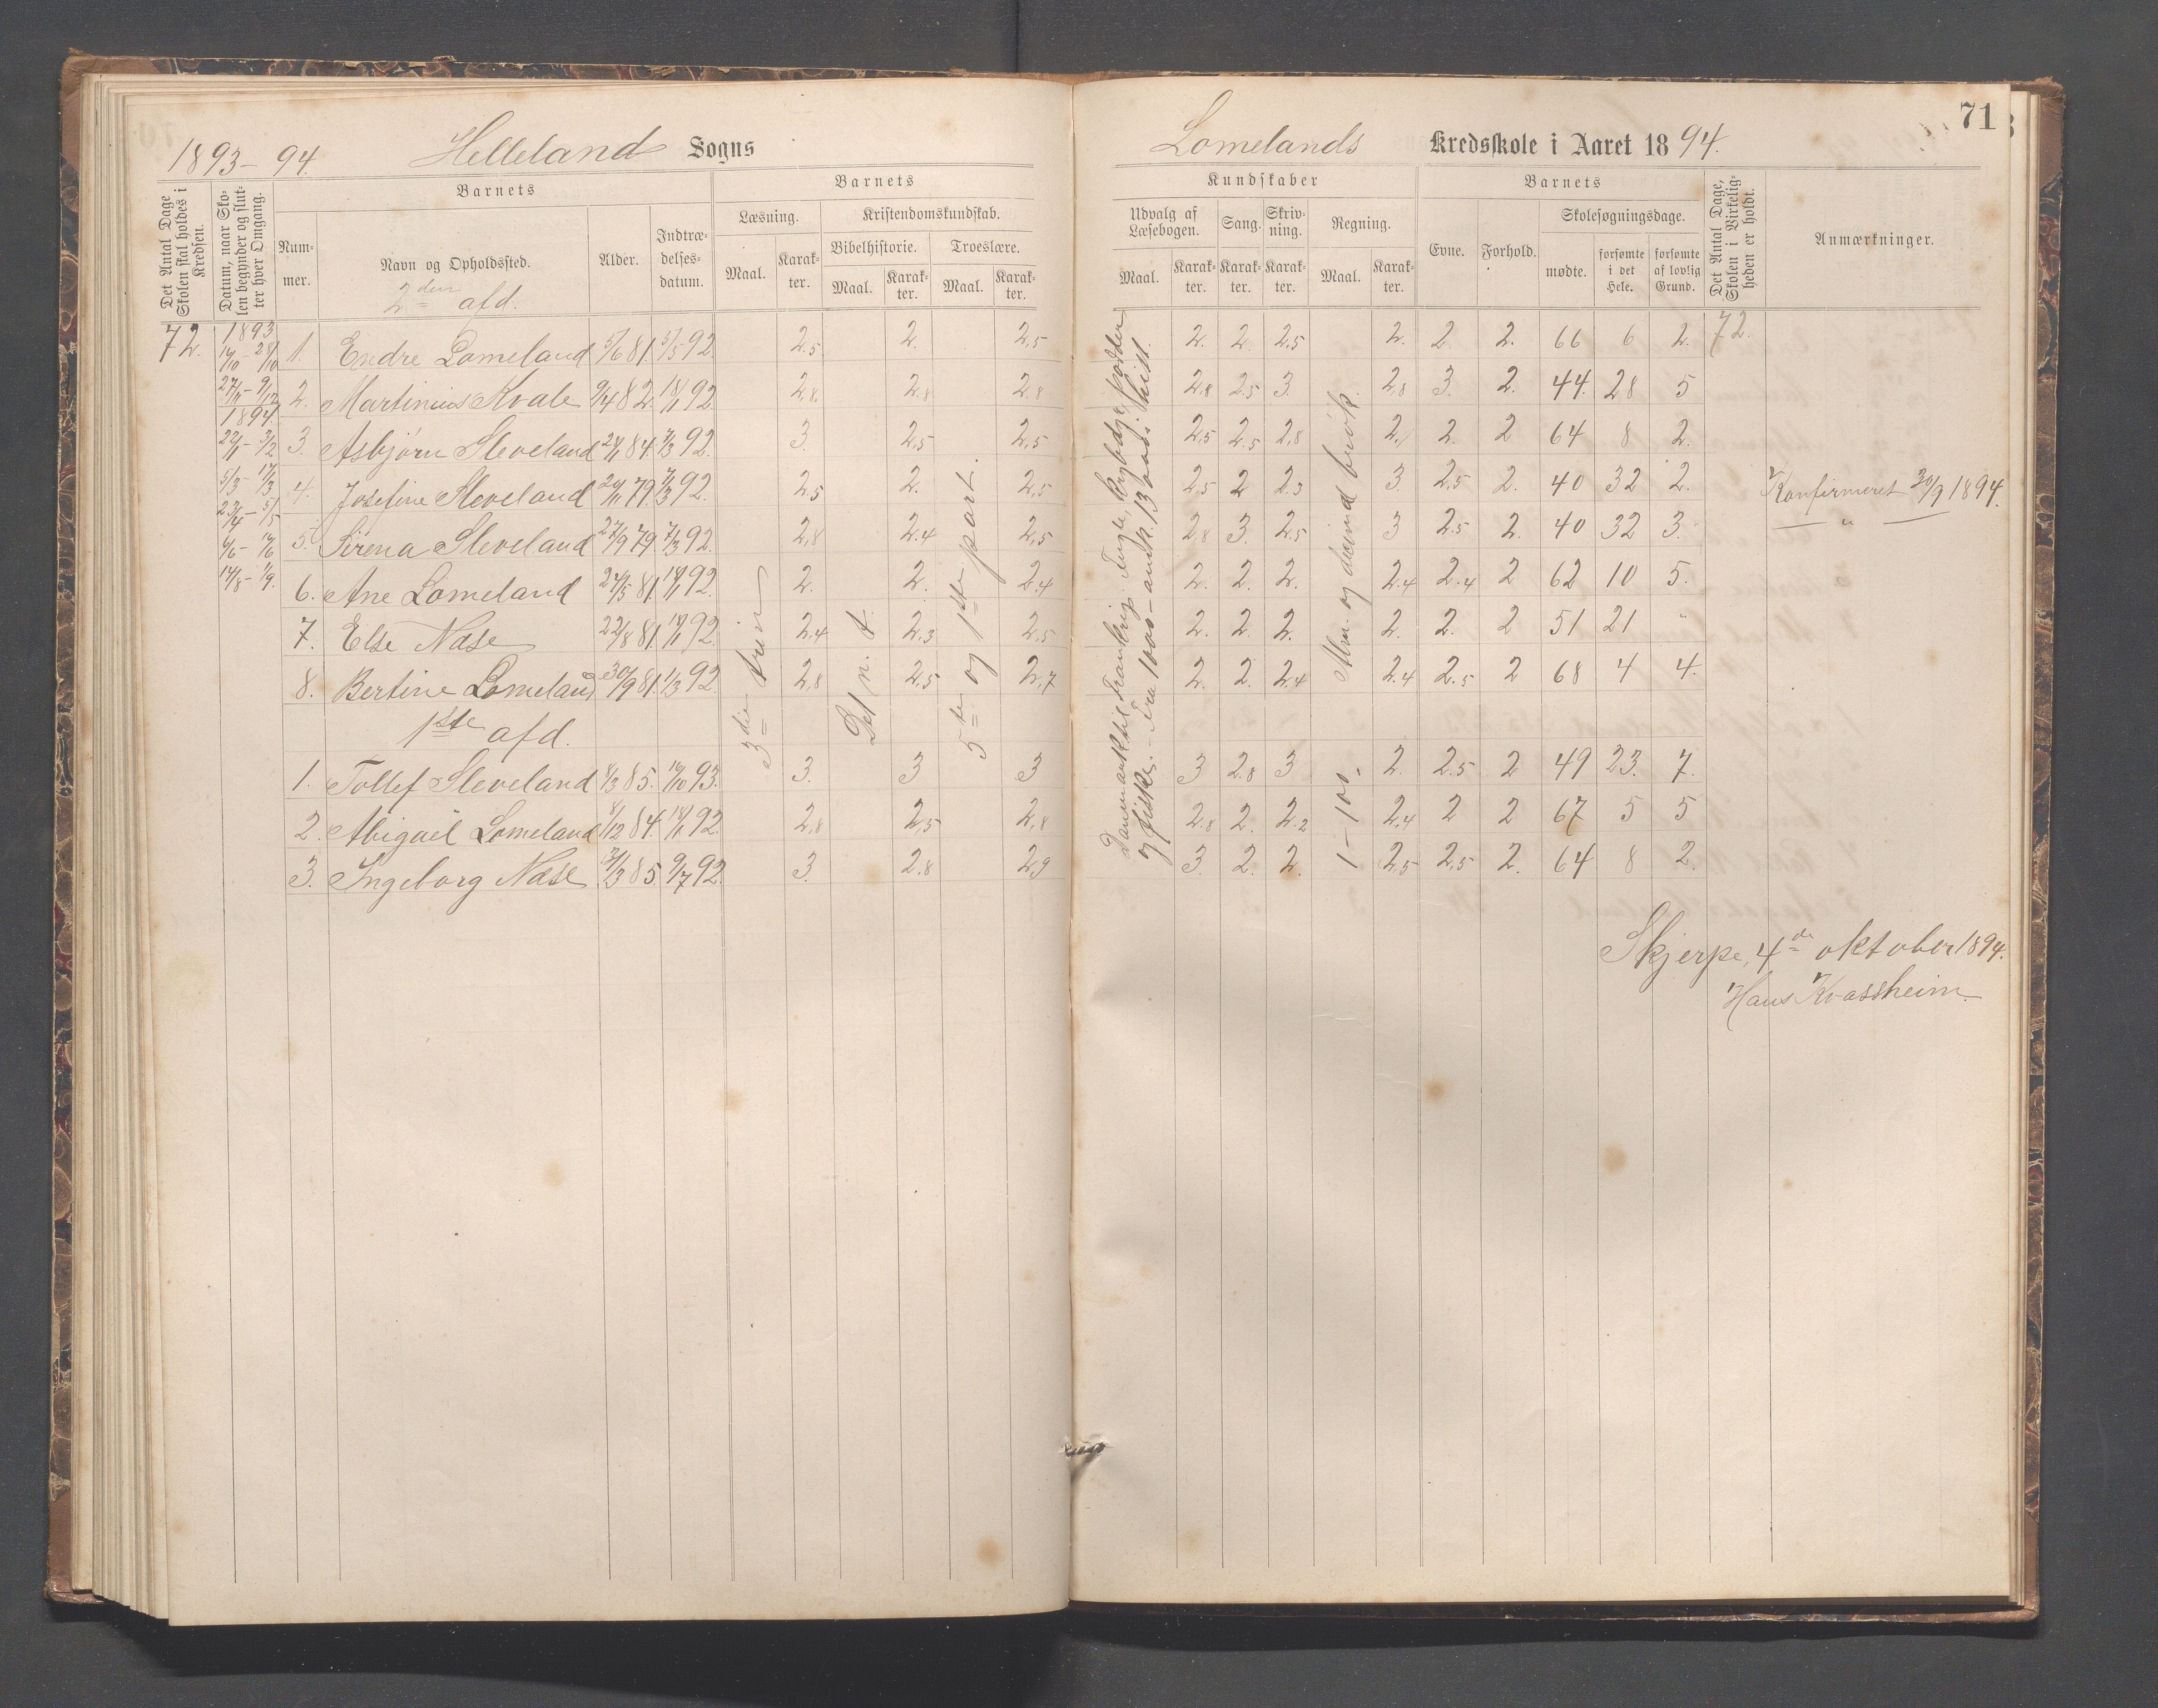 71
1893-94. Helleland Sogns Lomelands Kredsskole i Aaret 1894.
Det Antal Dage Skolen skal holdes i Kredsen.
Datum, naar Skolen begynder og slutter hver Omgang.
Barnets
Nummer.
Navn og Opholdssted.
2den afd.
Alder.
Indtrædelsesdatum.
Barnets
Læsning.
Maal.
Karakter.
Kristendomskundskab.
Bibelhistorie.
Maal.
Karakter.
Troeslære.
Maal.
Karakter.
Kundskaber
Udvalg af Læsebogen.
Maal.
Karakter.
Sang.
Karakter.
Skrivning.
Karakter.
Regning.
Maal.
Karakter.
Barnets
Evne.
Forhold.
Skolesøgningsdage.
mødte.
forsømte i det Hele.
forsømte af lovlig Grund.
Det Antal Dage, Skolen i Virkeligheden er holdt.
Anmærkninger.
72.
1893
14/10 - 28/10
27/11 - 9/12
1894.
22/1 - 3/2
5/3 - 17/3
23/4 - 5/5
4/6 - 16/6
14/8 - 1/9.
1. Endre Lomeland 5/6 81. 5/5 92. 2,5 2. 2,5 2. 2 2,5 2. 2 2. 66 6 2. 72.
2. Martinius Kvale 9/4 82. 18/1 92. 2,8. 2.8 2.8 2.8 2.5 3. 2,8 3. 2. 44. 28 5
3. Asbjørn Sleveland 24/1 84. 7/3 92. 3. 2,5 2,5 2,5 2.5 2,8 2, 2. 2 64 8 2.
4. Josefine Sleveland 29/11 79. 7/3 92. 2.5 2. 2,5 2,5 2 2.3 3. 2,5 2. 40 32 2. Konfirmeret 30/9 1894.
5. Sirena Sleveland 27/9 79. 7/3 92. 2,8 2.4 2,5 2,8 3. 2.5 3 2.5 2. 40 32 3. — " —
6. Ane Lomeland 24/5 81. 18/1 92. 2. 2. 2.4 2. 2. 2. 2.4 2.4 2 62 10 5.
7. Else Nase 22/8 81. 18/1 92. 2.4 2.3 2,5 2. 2. 2. 2. 2. 2 51 21 "
8. Bertine Lomeland 30/9 81. 1/3 92. 2,8 2,5 2,7 2. 2. 2,4 2.4 2.5 2 68 4 4.
1ste afd.
1. Tollef Sleveland 4/3 85. 16/10 93. 3. 3 3 3 2.8 3 2. 2.5 2 49 23. 7.
2. Abigael Lomeland 8/12 84. 18/1 92. 2,8 2,5 2,8 2.8 2. 2.2 2,4 2 2 67 5 5
3. Ingeborg Nase 31/3 85. 9/7 92. 3. 2.8 2,9 3. 2. 2. 2,5 2,5 2. 64 8 2.
3die trin
Det n. t.
5te og 1ste part.
Danmark til Frankrig. Fugle, krybdyr, padder
og fiske. - Fra 1000
Alm. og decimal brøk.
1-100.
Skjerpe, 4de oktober 1894.
Hans Kvassheim.